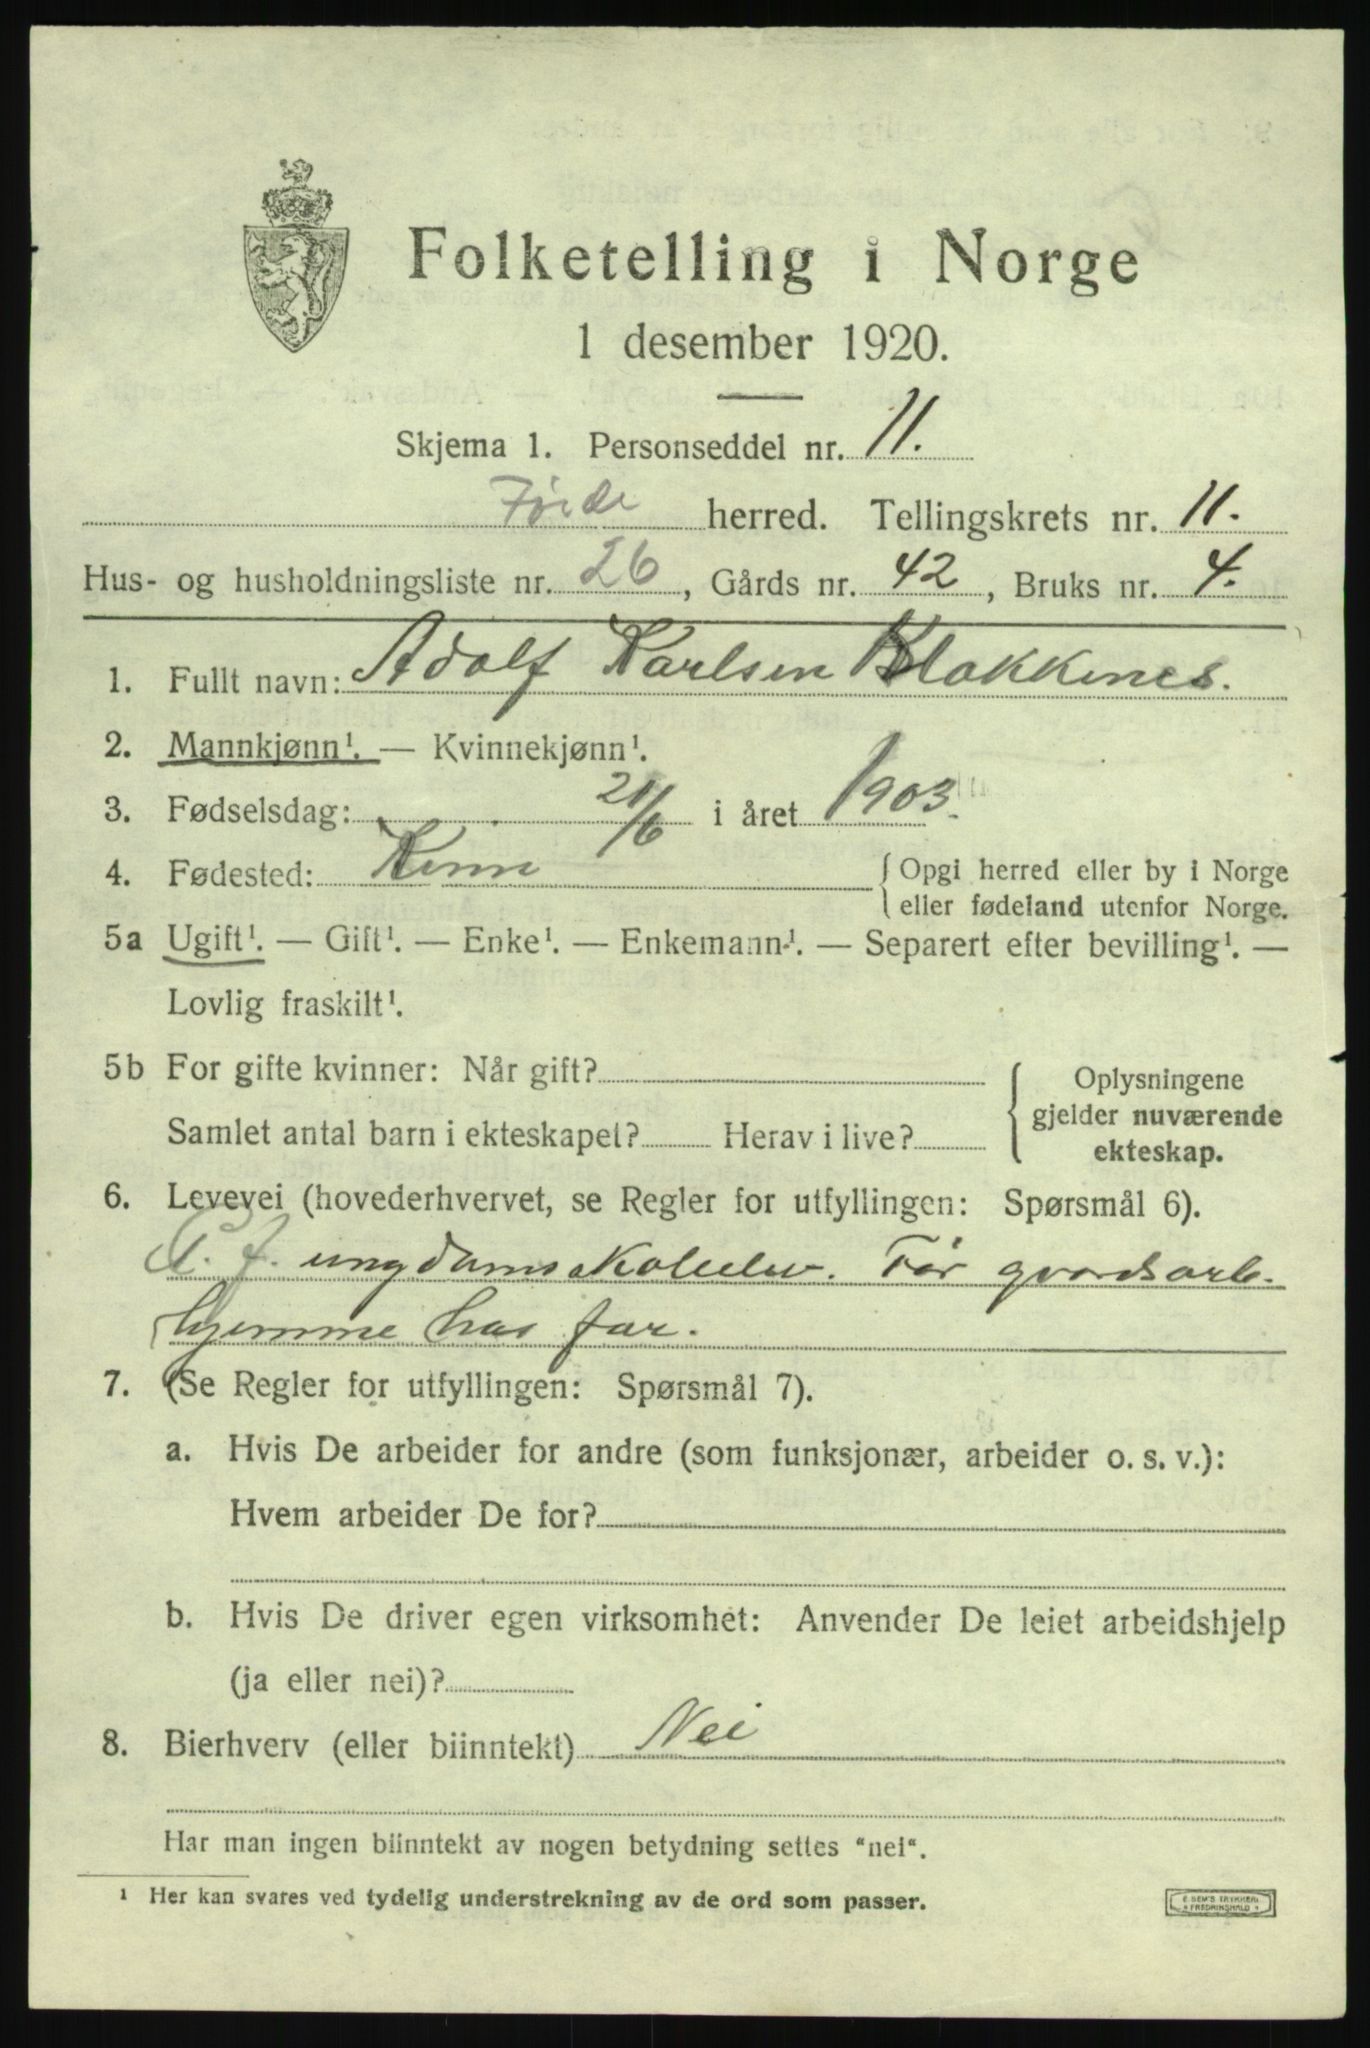 Folketelling i Norge
1 desember 1920.
Skjema 1. Personseddel nr. 11.
Førde herred. Tellingskrets nr. 11.
Hus- og husholdningsliste nr. 26, Gårds nr. 42, Bruks nr. 4.
1. Fullt navn: Adolf Karlsen Klakkenes.
2. Mannkjønn¹. — Kvinnekjønn¹.
3. Fødselsdag: 21/6 i året 1903.
4. Fødested: Kinn { Opgi herred eller by i Norge
eller fødeland utenfor Norge.
5a Ugift¹. — Gift¹. — Enke¹. — Enkemann¹. — Separert efter bevilling¹. —
Lovlig fraskilt¹.
5b For gifte kvinner: Når gift? { Oplysningene
gjelder nuværende
Samlet antal barn i ekteskapet? Herav i live?
ekteskap.
6. Levevei (hovederhvervet, se Regler for utfyllingen: Spørsmål 6).
P. t. ungdomsskoleelev. Før gaardsarb.
hjemme hos far.
7. (Se Regler for utfyllingen: Spørsmål 7).
a. Hvis De arbeider for andre (som funksjonær, arbeider o. s. v.):
Hvem arbeider De for?
b. Hvis De driver egen virksomhet: Anvender De leiet arbeidshjelp
(ja eller nei)?
8. Bierhverv (eller biinntekt) Nei
Har man ingen biinntekt av nogen betydning settes “nei“.
¹ Her kan svares ved tydelig understrekning av de ord som passer.
E. SEM'S TRYKKERI
FREDRIKSHALD